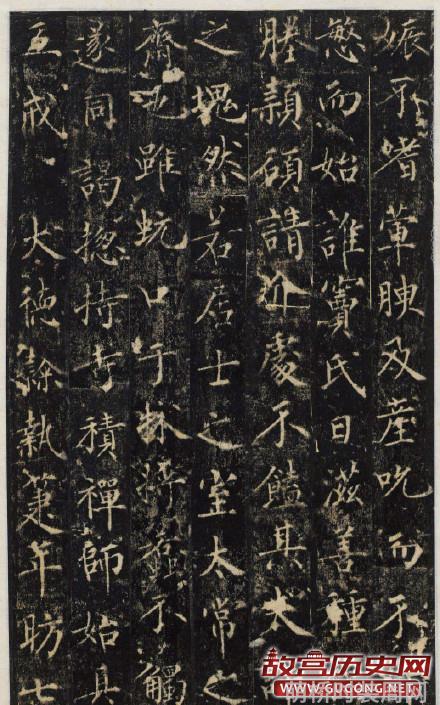 娠不嗜葷腴及產吮而不
慜而始誰竇氏曰滋善種
頛碩請益處不饁其太
之塊然若居士之室太常之
齋也雖蚖口于牀將不觸
遂同謁揔持寺積禪師始具
五戒大德餘執筆年昉七
故宫历史网
WWW.GUGONG.NET